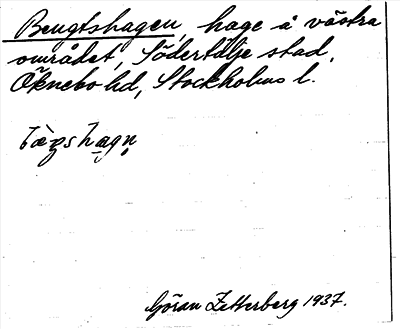 Bengtshagen, hage å västra
området, Södertälje stad,
Öknebo hd, Stockholms l.
Göran Zetterberg 1937.